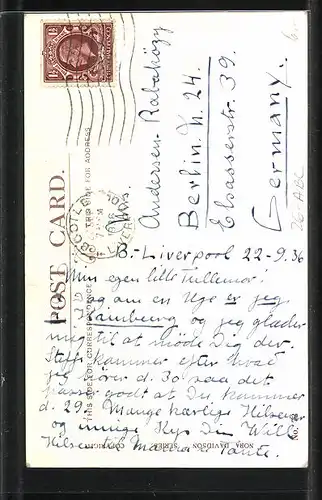 Mrs.
Andersen-Rabaközy
Berlin N. 24.
Elsasserstr. 39.
Germany.
B.-Liverpool 22-9.36
Min egen lille Tullemor!
I Dag om en Uge er jeg
i Hamburg og jeg glæder
mig til at møde Dig der.
Steffi kommer efter hvad
jeg hører d. 30 saa det
passer godt at Du kommer
d. 29. Mange kærlige Hilsener
og mange Kys Din Willi
Hilsen til Mama og Tante.
POST CARD.
THIS SIDE FOR CORRESPONDENCE
THIS SIDE FOR ADDRESS
NORA DAVISON SERIES
COPYRIGHT
No.